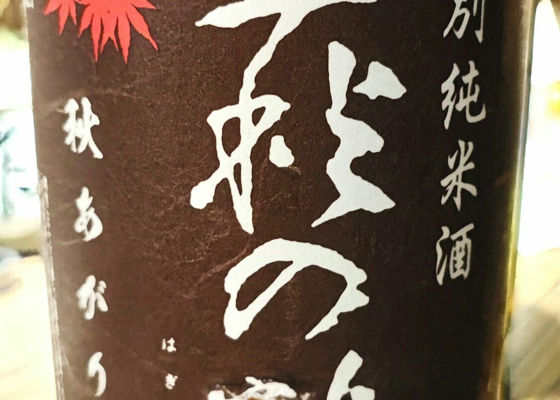 別純米酒
萩の
はぎ
秋あがり